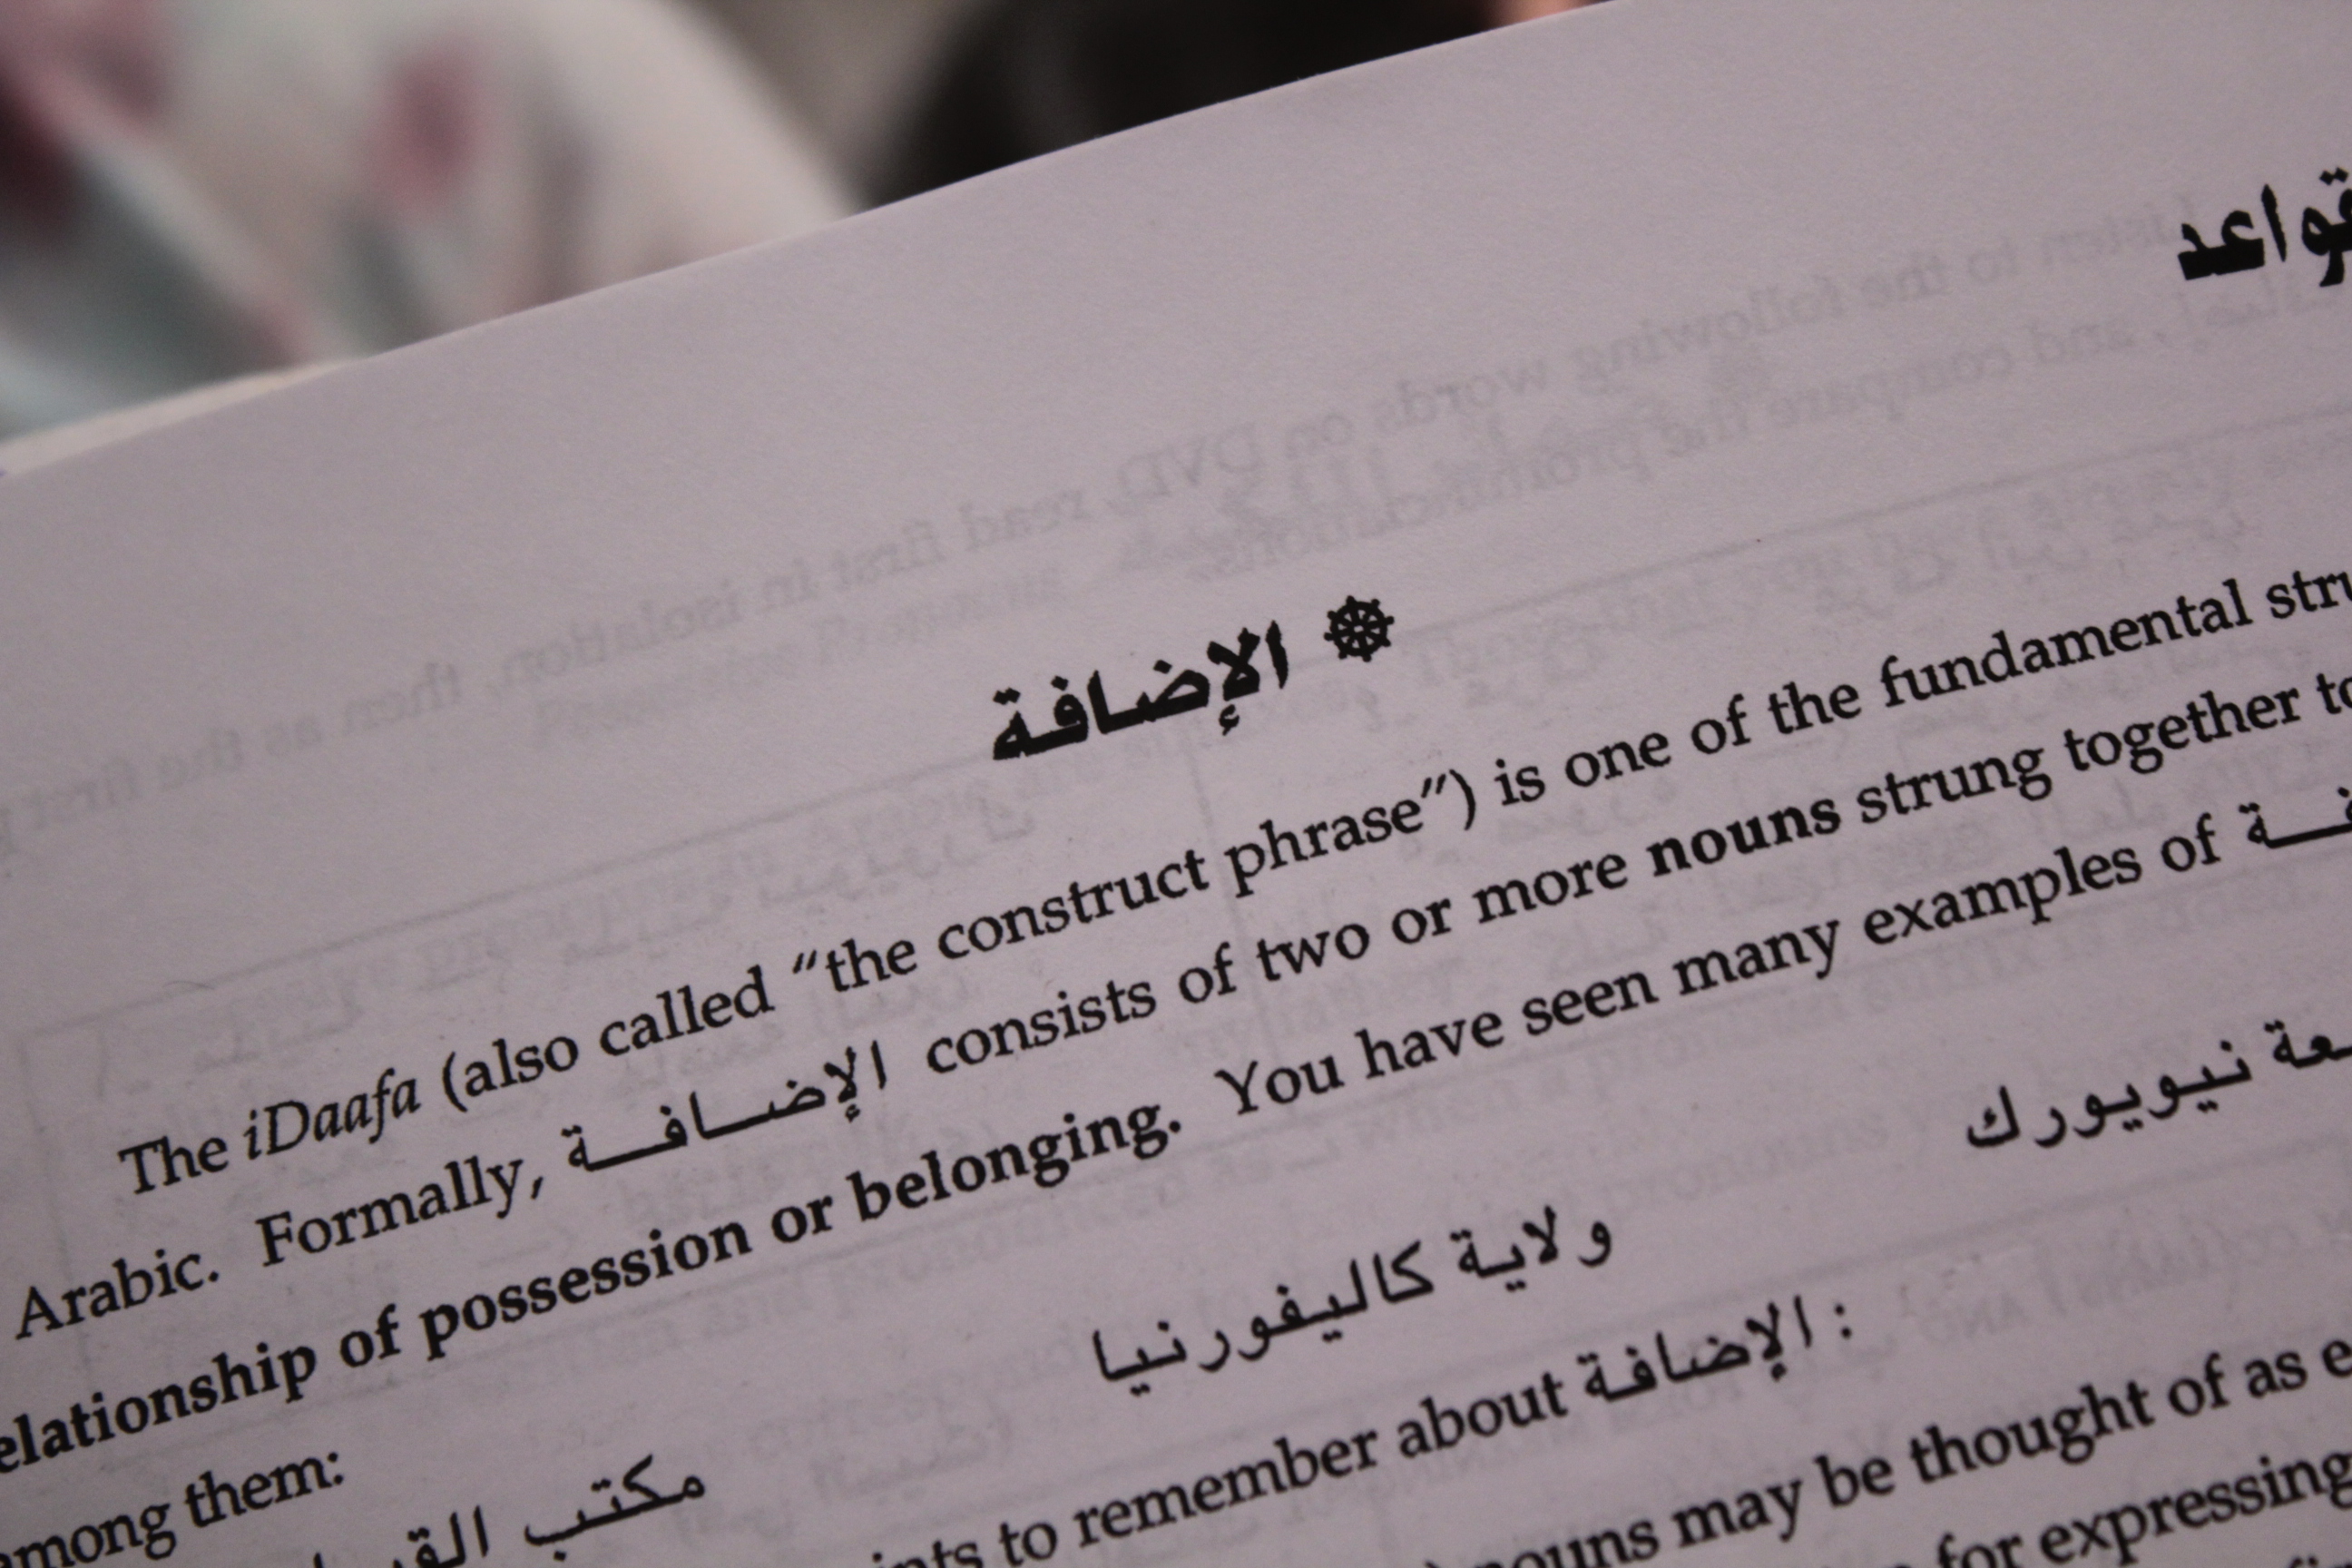 قواعد
❸الإضافة
The iDaafa (also called "the construct phrase") is one of the fundamental
Arabic. Formally, الإضافة consists of two or more nouns strung together
of possession or belonging. You have seen many examples of
among them:
نيويورك
ولاية كاليفورنيا
مكتب
to remember about الإضافة :
nouns may be thought of as
for expressing